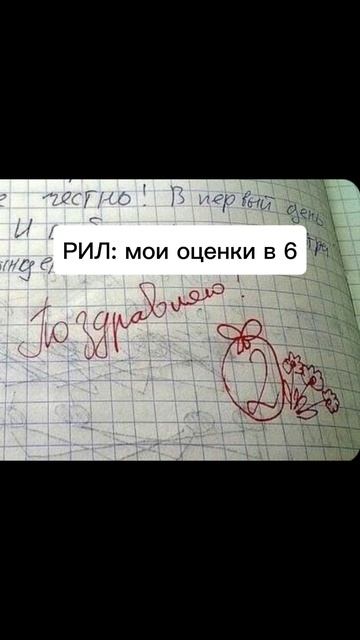 честно! В первый день
И
РИЛ: мои оценки в 6
Поздравляю!
2